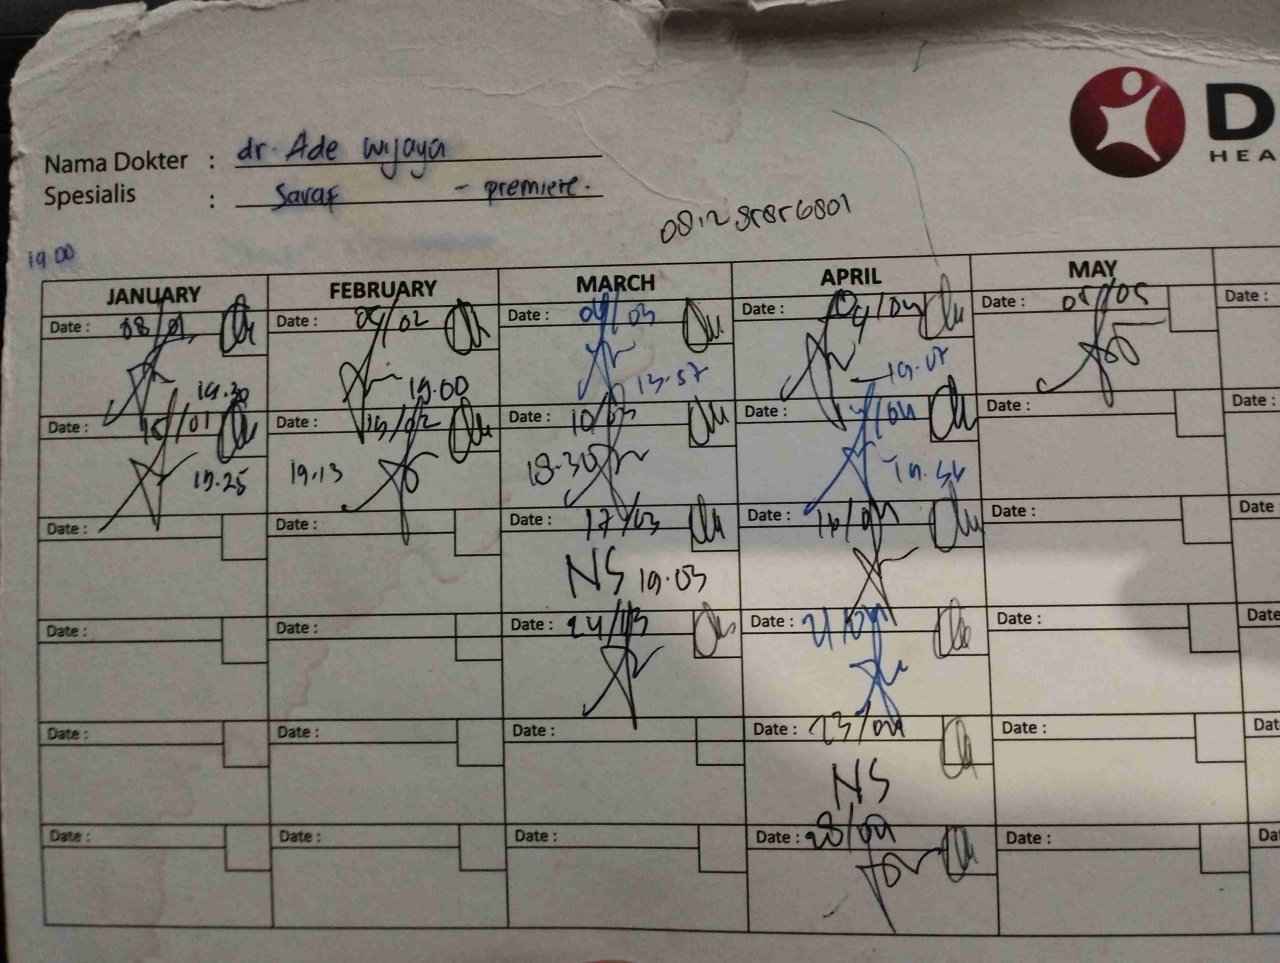 Nama Dokter : dr. Ade Wijaya
Spesialis : Saraf - premiere.
D
HEA
19.00
JANUARY FEBRUARY MARCH APRIL MAY
Date : 08/01 Date : 04/02 Date : 04/03 Date : 04/04 Date : 05/05 Date :
19.30 19.00 13.57 19.07
Date : 15/01 Date : 13/02 Date : 10/03 Date : 14/04 Date : Date :
19.25 19.13 18.30
Date : Date : Date : 17/03 Date : 16/04 Date : Date
NS 19.03
Date : Date : Date : 24/03 Date : 21/04 Date : Date
Date : Date : Date : Date : 23/04 Date : Dat
NS
Date : Date : Date : Date : 28/04 Date : Da